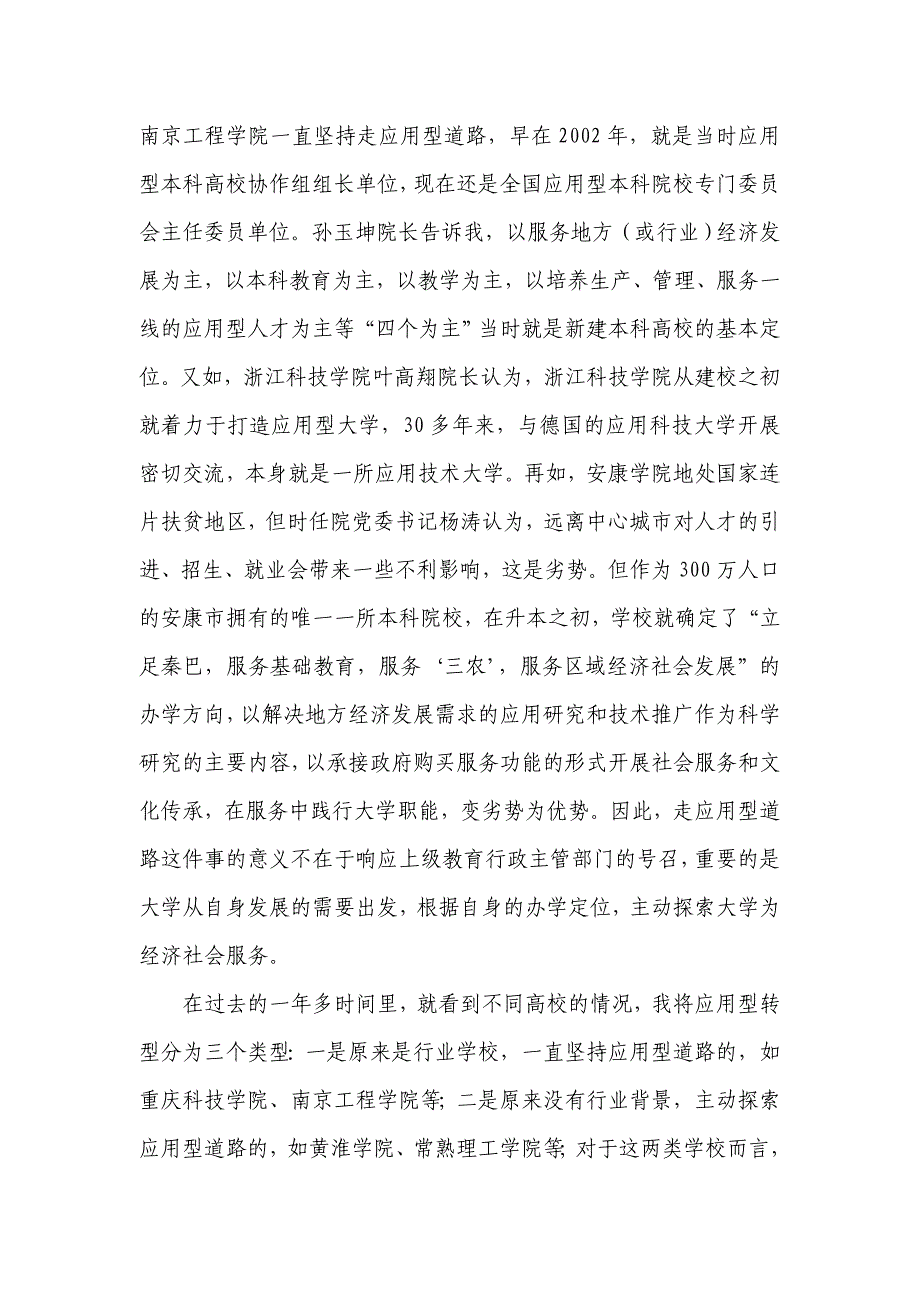 南京工程学院一直坚持走应用型道路，早在 2002 年，就是当时应用
型本科高校协作组组长单位，现在还是全国应用型本科院校专门委员
会主任委员单位。孙玉坤院长告诉我，以服务地方（或行业）经济发
展为主，以本科教育为主，以教学为主，以培养生产、管理、服务一
线的应用型人才为主等“四个为主”当时就是新建本科高校的基本定
位。又如，浙江科技学院叶高翔院长认为，浙江科技学院从建校之初
就着力于打造应用型大学，30 多年来，与德国的应用科技大学开展
密切交流，本身就是一所应用技术大学。再如，安康学院地处国家连
片扶贫地区，但时任院党委书记杨涛认为，远离中心城市对人才的引
进、招生、就业会带来一些不利影响，这是劣势。但作为 300 万人口
的安康市拥有的唯一一所本科院校，在升本之初，学校就确定了“立
足秦巴，服务基础教育，服务‘三农’，服务区域经济社会发展”的
办学方向，以解决地方经济发展需求的应用研究和技术推广作为科学
研究的主要内容，以承接政府购买服务功能的形式开展社会服务和文
化传承，在服务中践行大学职能，变劣势为优势。因此，走应用型道
路这件事的意义不在于响应上级教育行政主管部门的号召，重要的是
大学从自身发展的需要出发，根据自身的办学定位，主动探索大学为
经济社会服务。
在过去的一年多时间里，就看到不同高校的情况，我将应用型转
型分为三个类型：一是原来是行业学校，一直坚持应用型道路的，如
重庆科技学院、南京工程学院等；二是原来没有行业背景，主动探索
应用型道路的，如黄淮学院、常熟理工学院等；对于这两类学校而言，